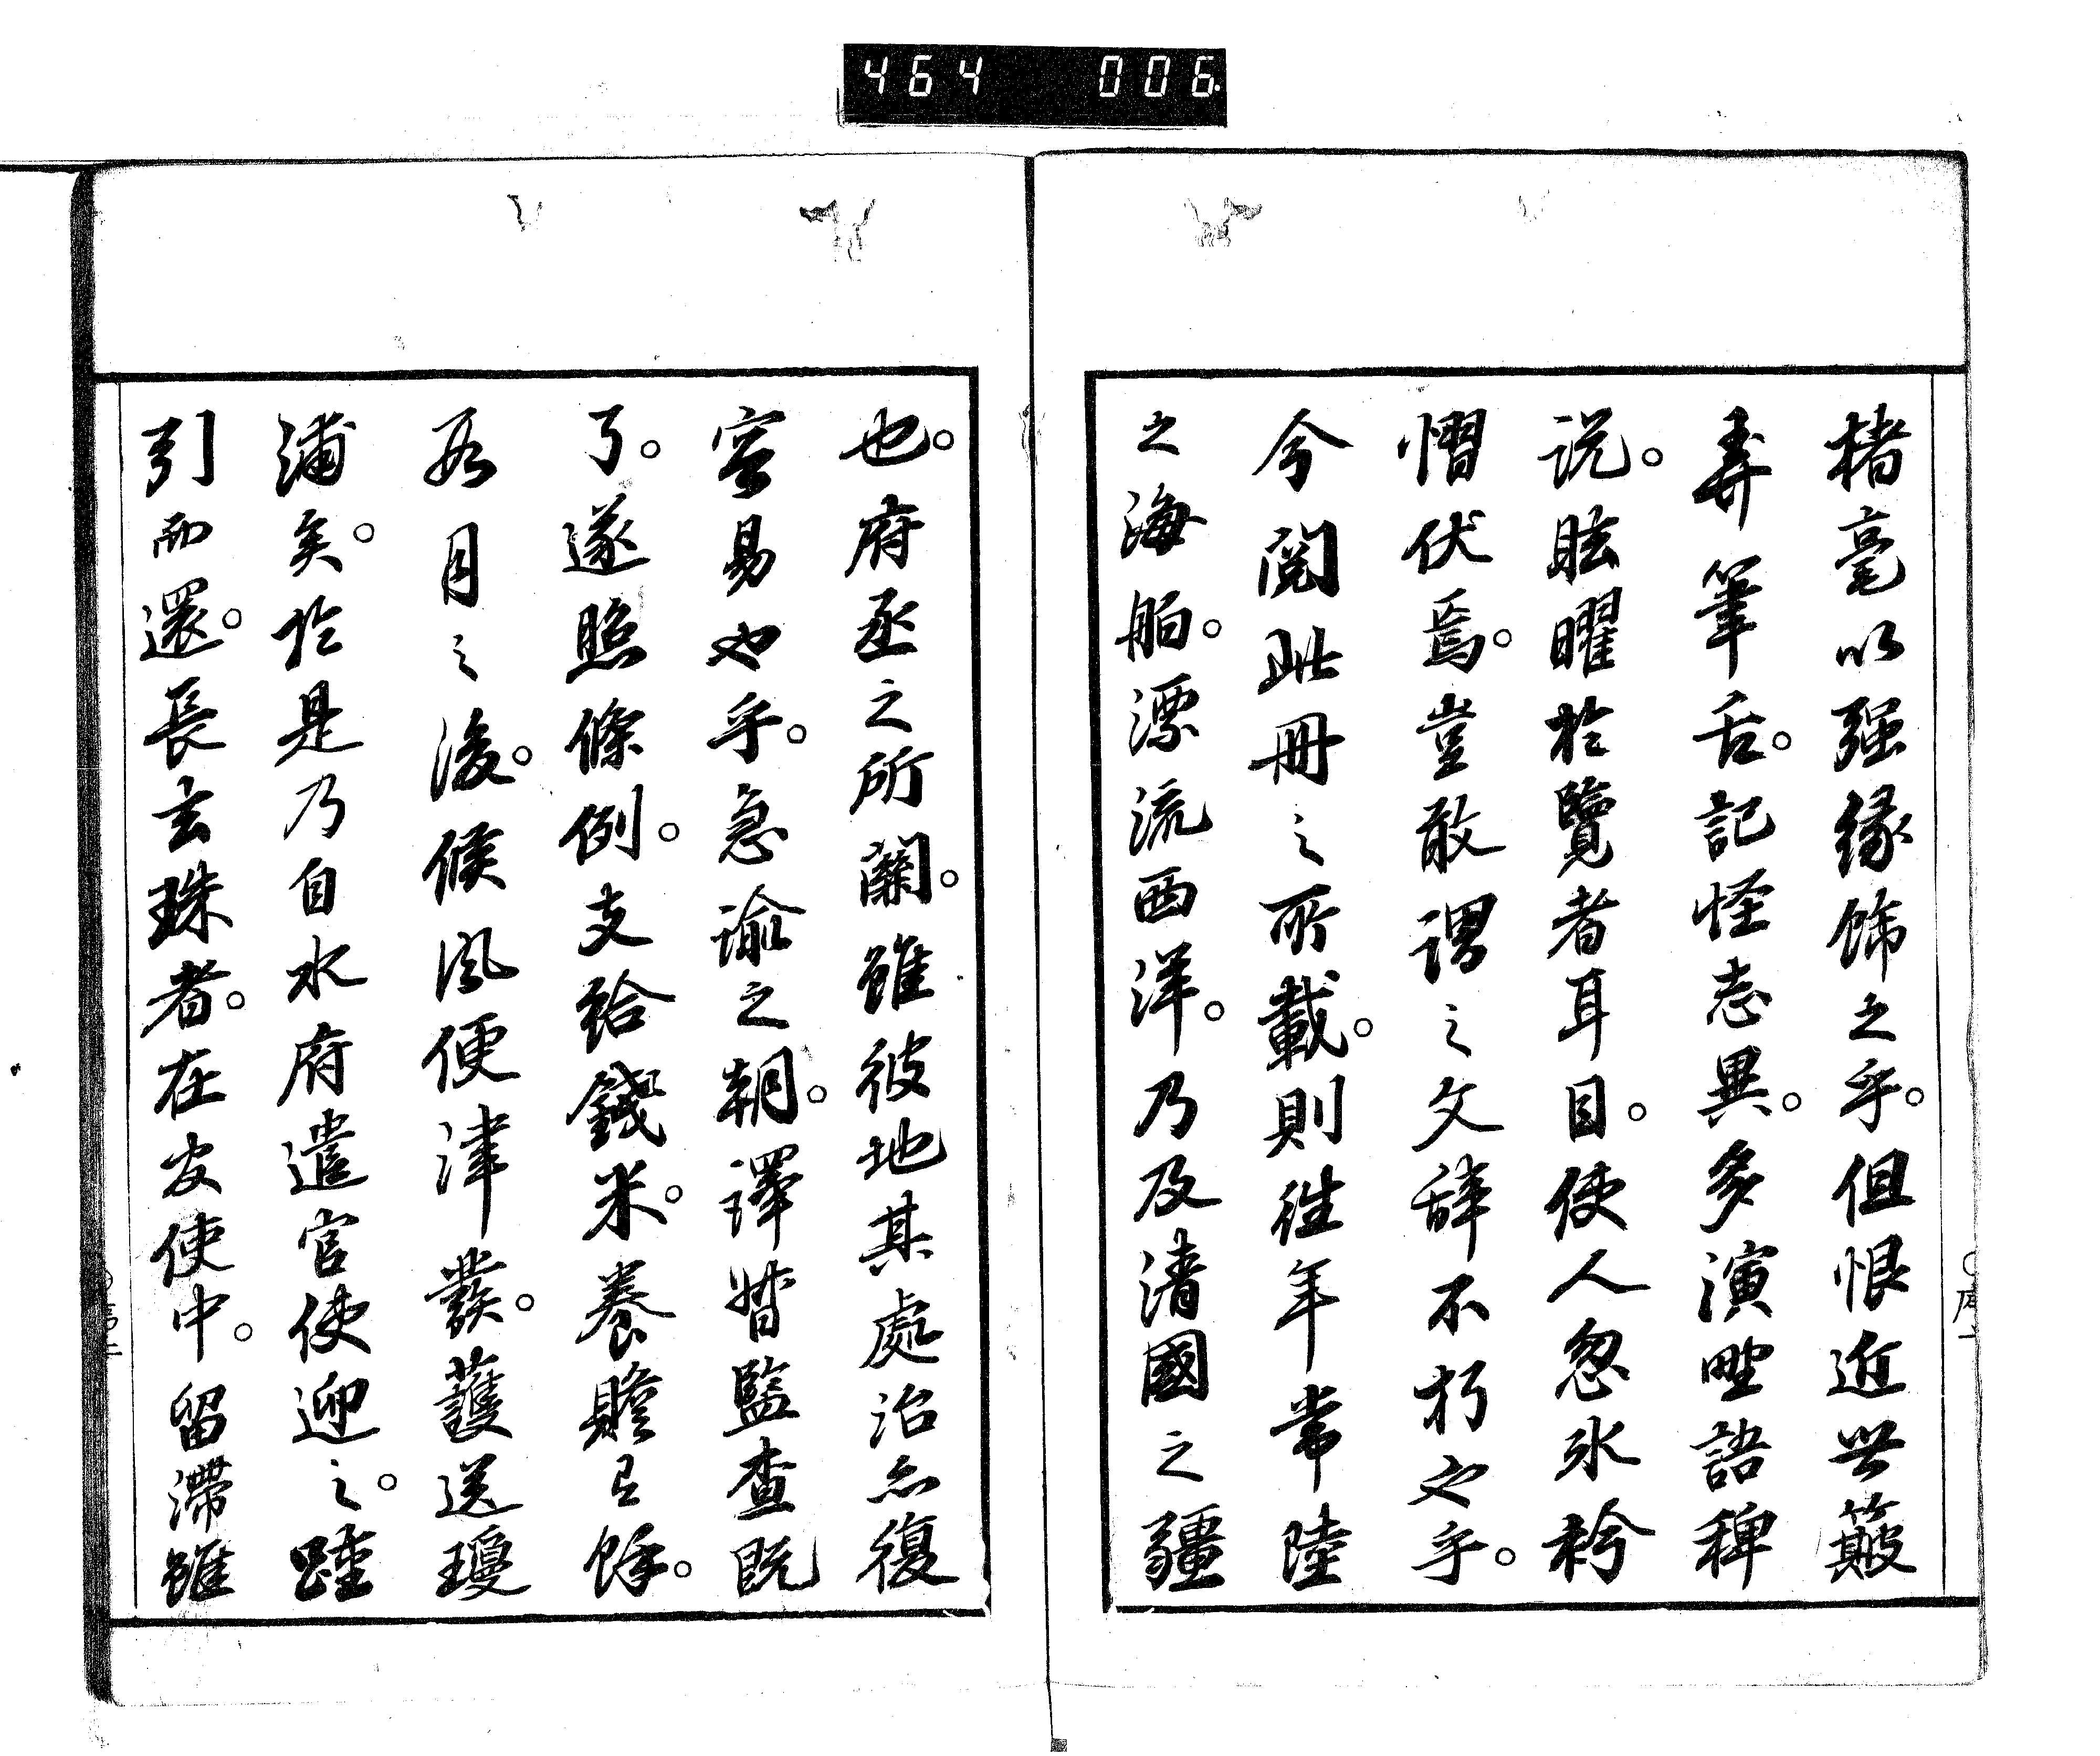 464 006
楮毫以强緣飾之乎。但恨近世簸
弄筆舌。記怪志異。多演野語稗
説。眩曜於覽者耳目。使人忽氷衿
慴伏焉。豈敢謂之文辞不朽也乎。
今閲此冊之所載。則徃年常陸
之海舶。漂流西洋。乃及清國之疆
也。府丞之所關。雖彼地其處治亦復
容易也乎。急諭之朝。譯背監査既
了。遂照條例。支給錢米。養贍有餘。
數月之後。候風便津發。護送瓊
浦矣。於是乃自水府遣官使迎之。踵
引而還。長玄珠者。在友使中。留滯雖